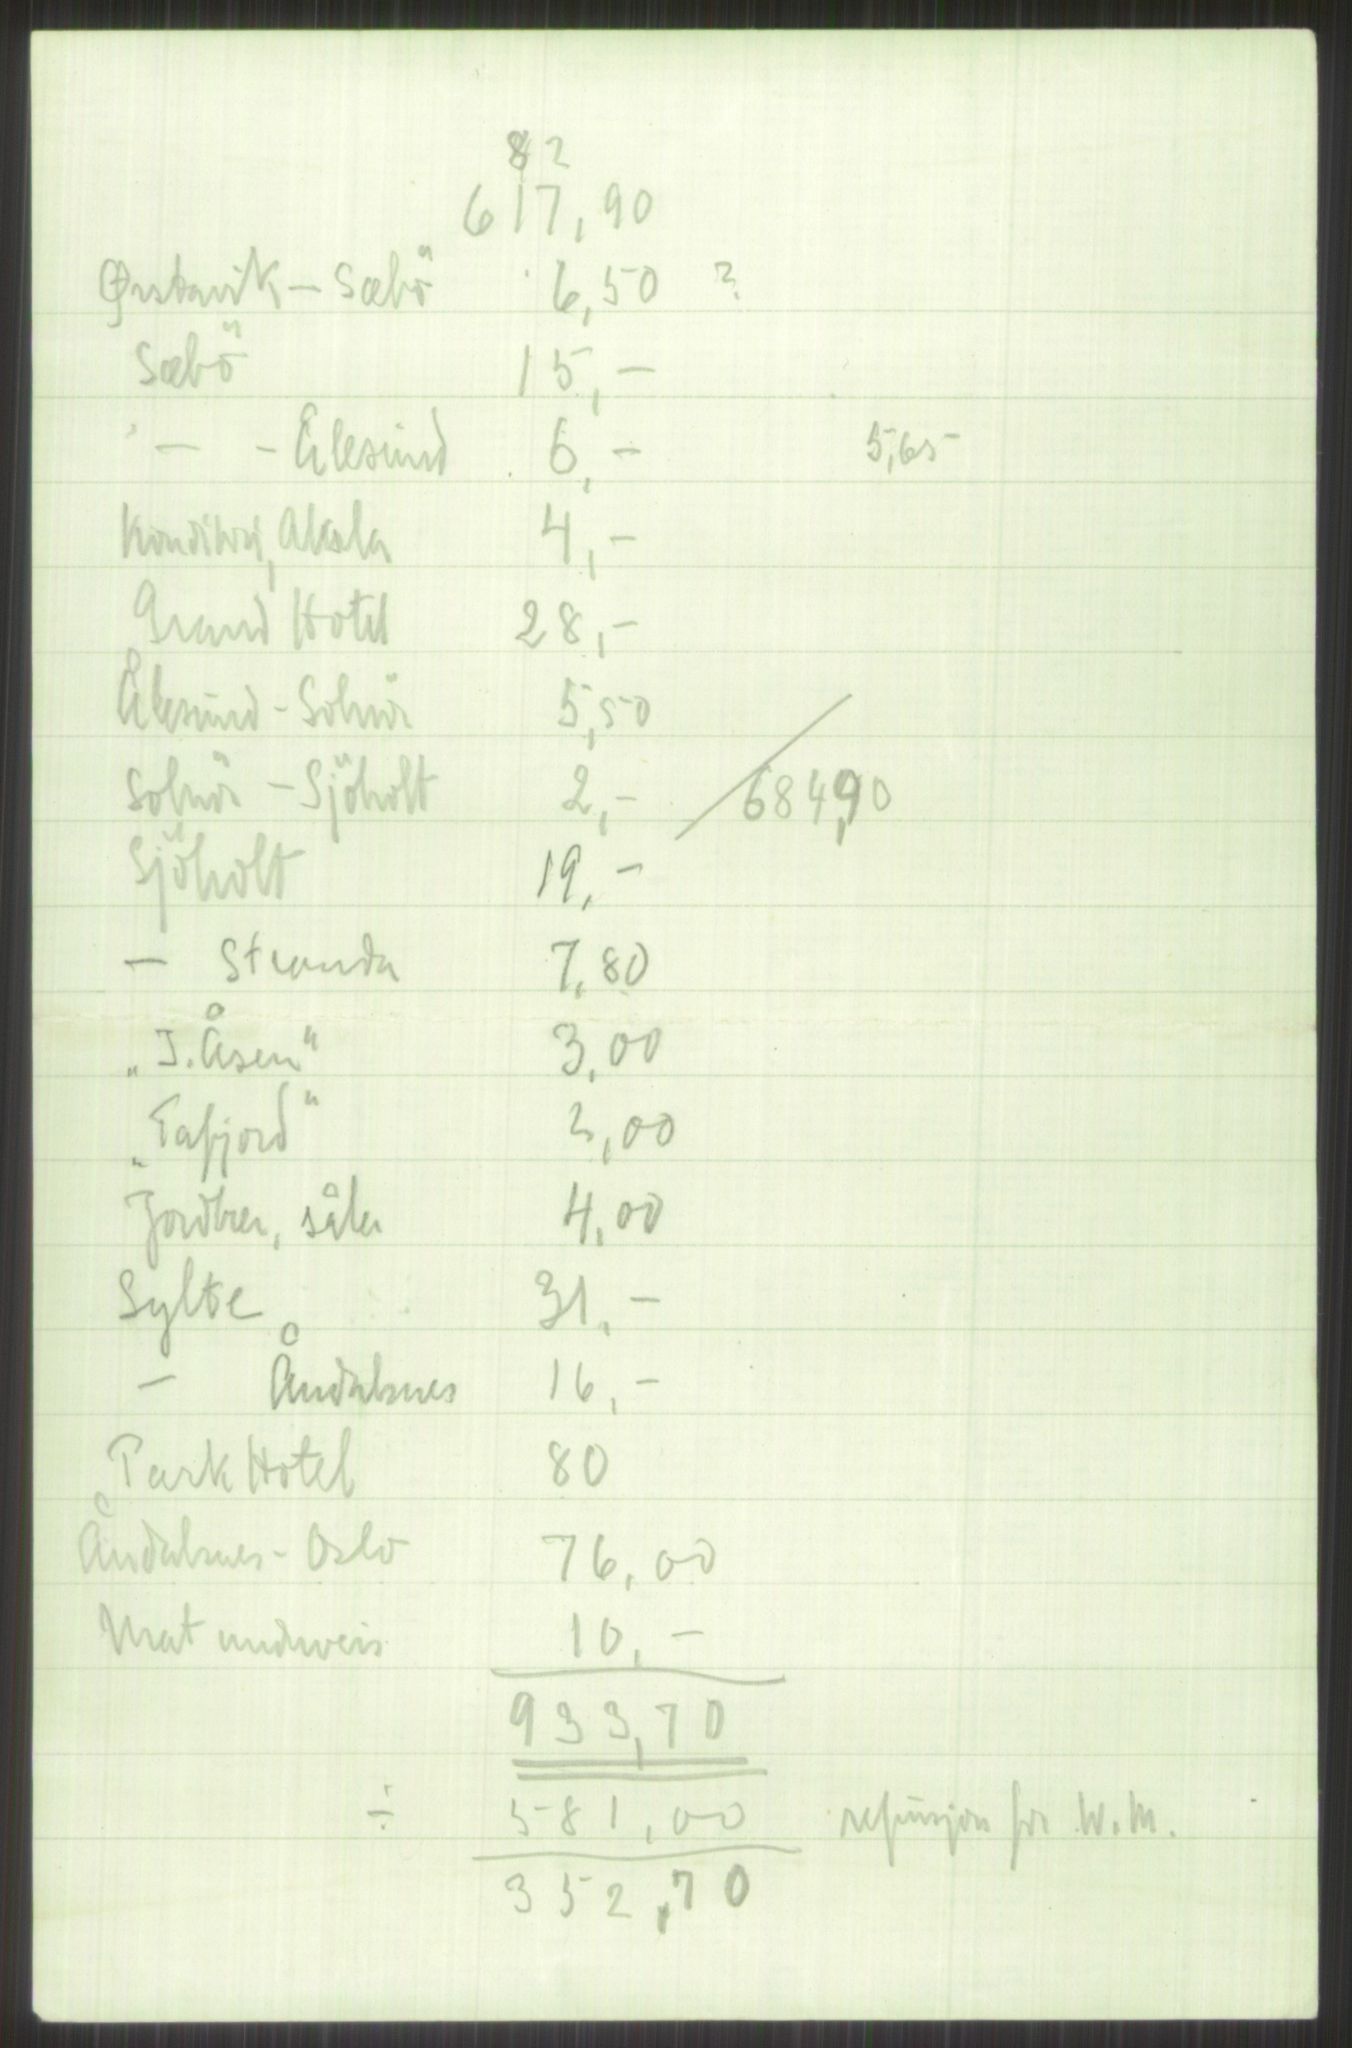 82
617,90
Ørstavik – Sæbö 6,50 ?
Sæbö 15,–
– - Ålesund 6,– 5,65
Konditori, Aksla 4,–
Grand Hotel 28,–
Ålesund - Solnör 5,50
Solnör – Sjöholt 2,– 684,90
Sjöholt 19,–
– Stranda 7,80
„I. Åsen" 3,00
„Tafjord" 3,00
Jordbær, såler 4,00
Sylte 31,–
– Åndalsnes 16,–
Park Hotel 80
Åndalsnes - Oslo 76,00
Mat underveis 10,–
933,70
÷ 581,00 refusjon for W.M.
352,70